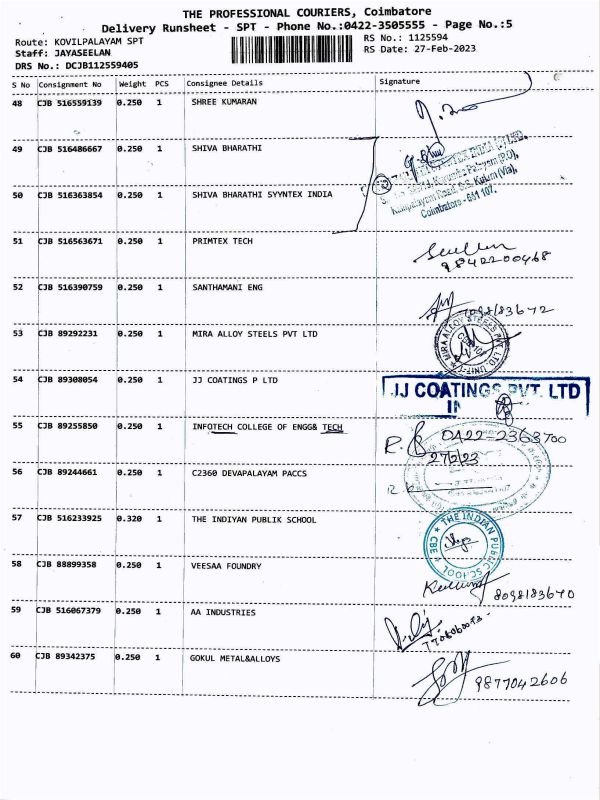 THE PROFESSIONAL COURIERS, Coimbatore
Delivery Runsheet - SPT - Phone No.:0422-3505555 - Page No.:5
Route: KOVILPALAYAM SPT
Staff: JAYASEELAN
DRS No.: DCJB112559405
RS No.: 1125594
RS Date: 27-Feb-2023
S No Consignment No Weight PCS Consignee Details Signature
48 CJB 516559139 0.250 1 SHREE KUMARAN
49 CJB 516486667 0.250 1 SHIVA BHARATHI
50 CJB 516363854 0.250 1 SHIVA BHARATHI SYYNTEX INDIA
Coimbatore - 641 107.
51 CJB 516563671 0.250 1 PRIMTEX TECH
9842200468
52 CJB 516390759 0.250 1 SANTHAMANI ENG
53 CJB 89292231 0.250 1 MIRA ALLOY STEELS PVT LTD
MIRA ALLOY STEELS PVT LTD
54 CJB 89308054 0.250 1 JJ COATINGS P LTD
JJ COATINGS PVT. LTD
55 CJB 89255850 0.250 1 INFOTECH COLLEGE OF ENGG& TECH
0422-2363700
27/2/23
56 CJB 89244661 0.250 1 C2360 DEVAPALAYAM PACCS
57 CJB 516233925 0.320 1 THE INDIYAN PUBLIK SCHOOL
THE INDIAN PUBLIC SCHOOL
CBE
58 CJB 88899358 0.250 1 VEESAA FOUNDRY
8098183670
59 CJB 516067379 0.250 1 AA INDUSTRIES
60 CJB 89342375 0.250 1 GOKUL METAL&ALLOYS
9877042606